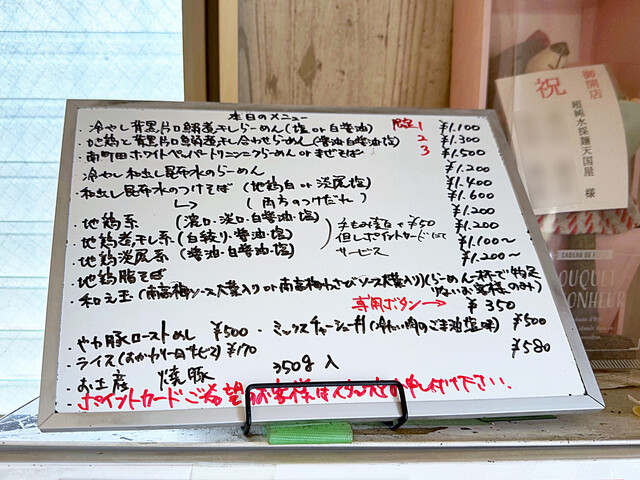 本日のメニュー
・冷やし背黒片口鰯煮干しらーめん(塩 or 白醤油) 限定1 ¥1.100
・地鶏と片口鰯煮干し合わせらーめん(醤油・白醤油・塩) 2 ¥1.300
・南町田ホワイトペッパードリニンニクらーめん or まぜそば 3 ¥1.500
冷やし 和出し昆布水のらーめん ¥1.200
・和出し昆布水のつけそば (地鶏白 or 淡尾塩) ¥1.400
(両方のつけだれ) ¥1.600
・地鶏系 (濃口・淡口・白醤油・塩) ¥1.200
・地鶏煮干し系 (白絞り・醤油・塩) ¥1.200
・地鶏淡尾系 (醤油・白醤油・塩) ¥1.100〜
・地鶏脂そば ¥1.200〜
¥50
但しポイントカードにて
サービス
・和え玉 (南高梅ソース大葉入り or 南高梅わさびソース大葉入り)(らーめん一杯で物足りないお客様のみ)
専用ボタン→ ¥350
・やわ豚ローストめし ¥500 ・ミックスチャーシュー丼(冷たい肉のごま油塩味) ¥500
・ライス(おかわり一回サービス) ¥170 ¥580
・お土産 焼豚 350g入
・ポイントカードご希望のお客様は お申し付けください.
御開店
祝
超純水採麺天国屋 様
CADEAU DE
BOUQUET
BONHEUR